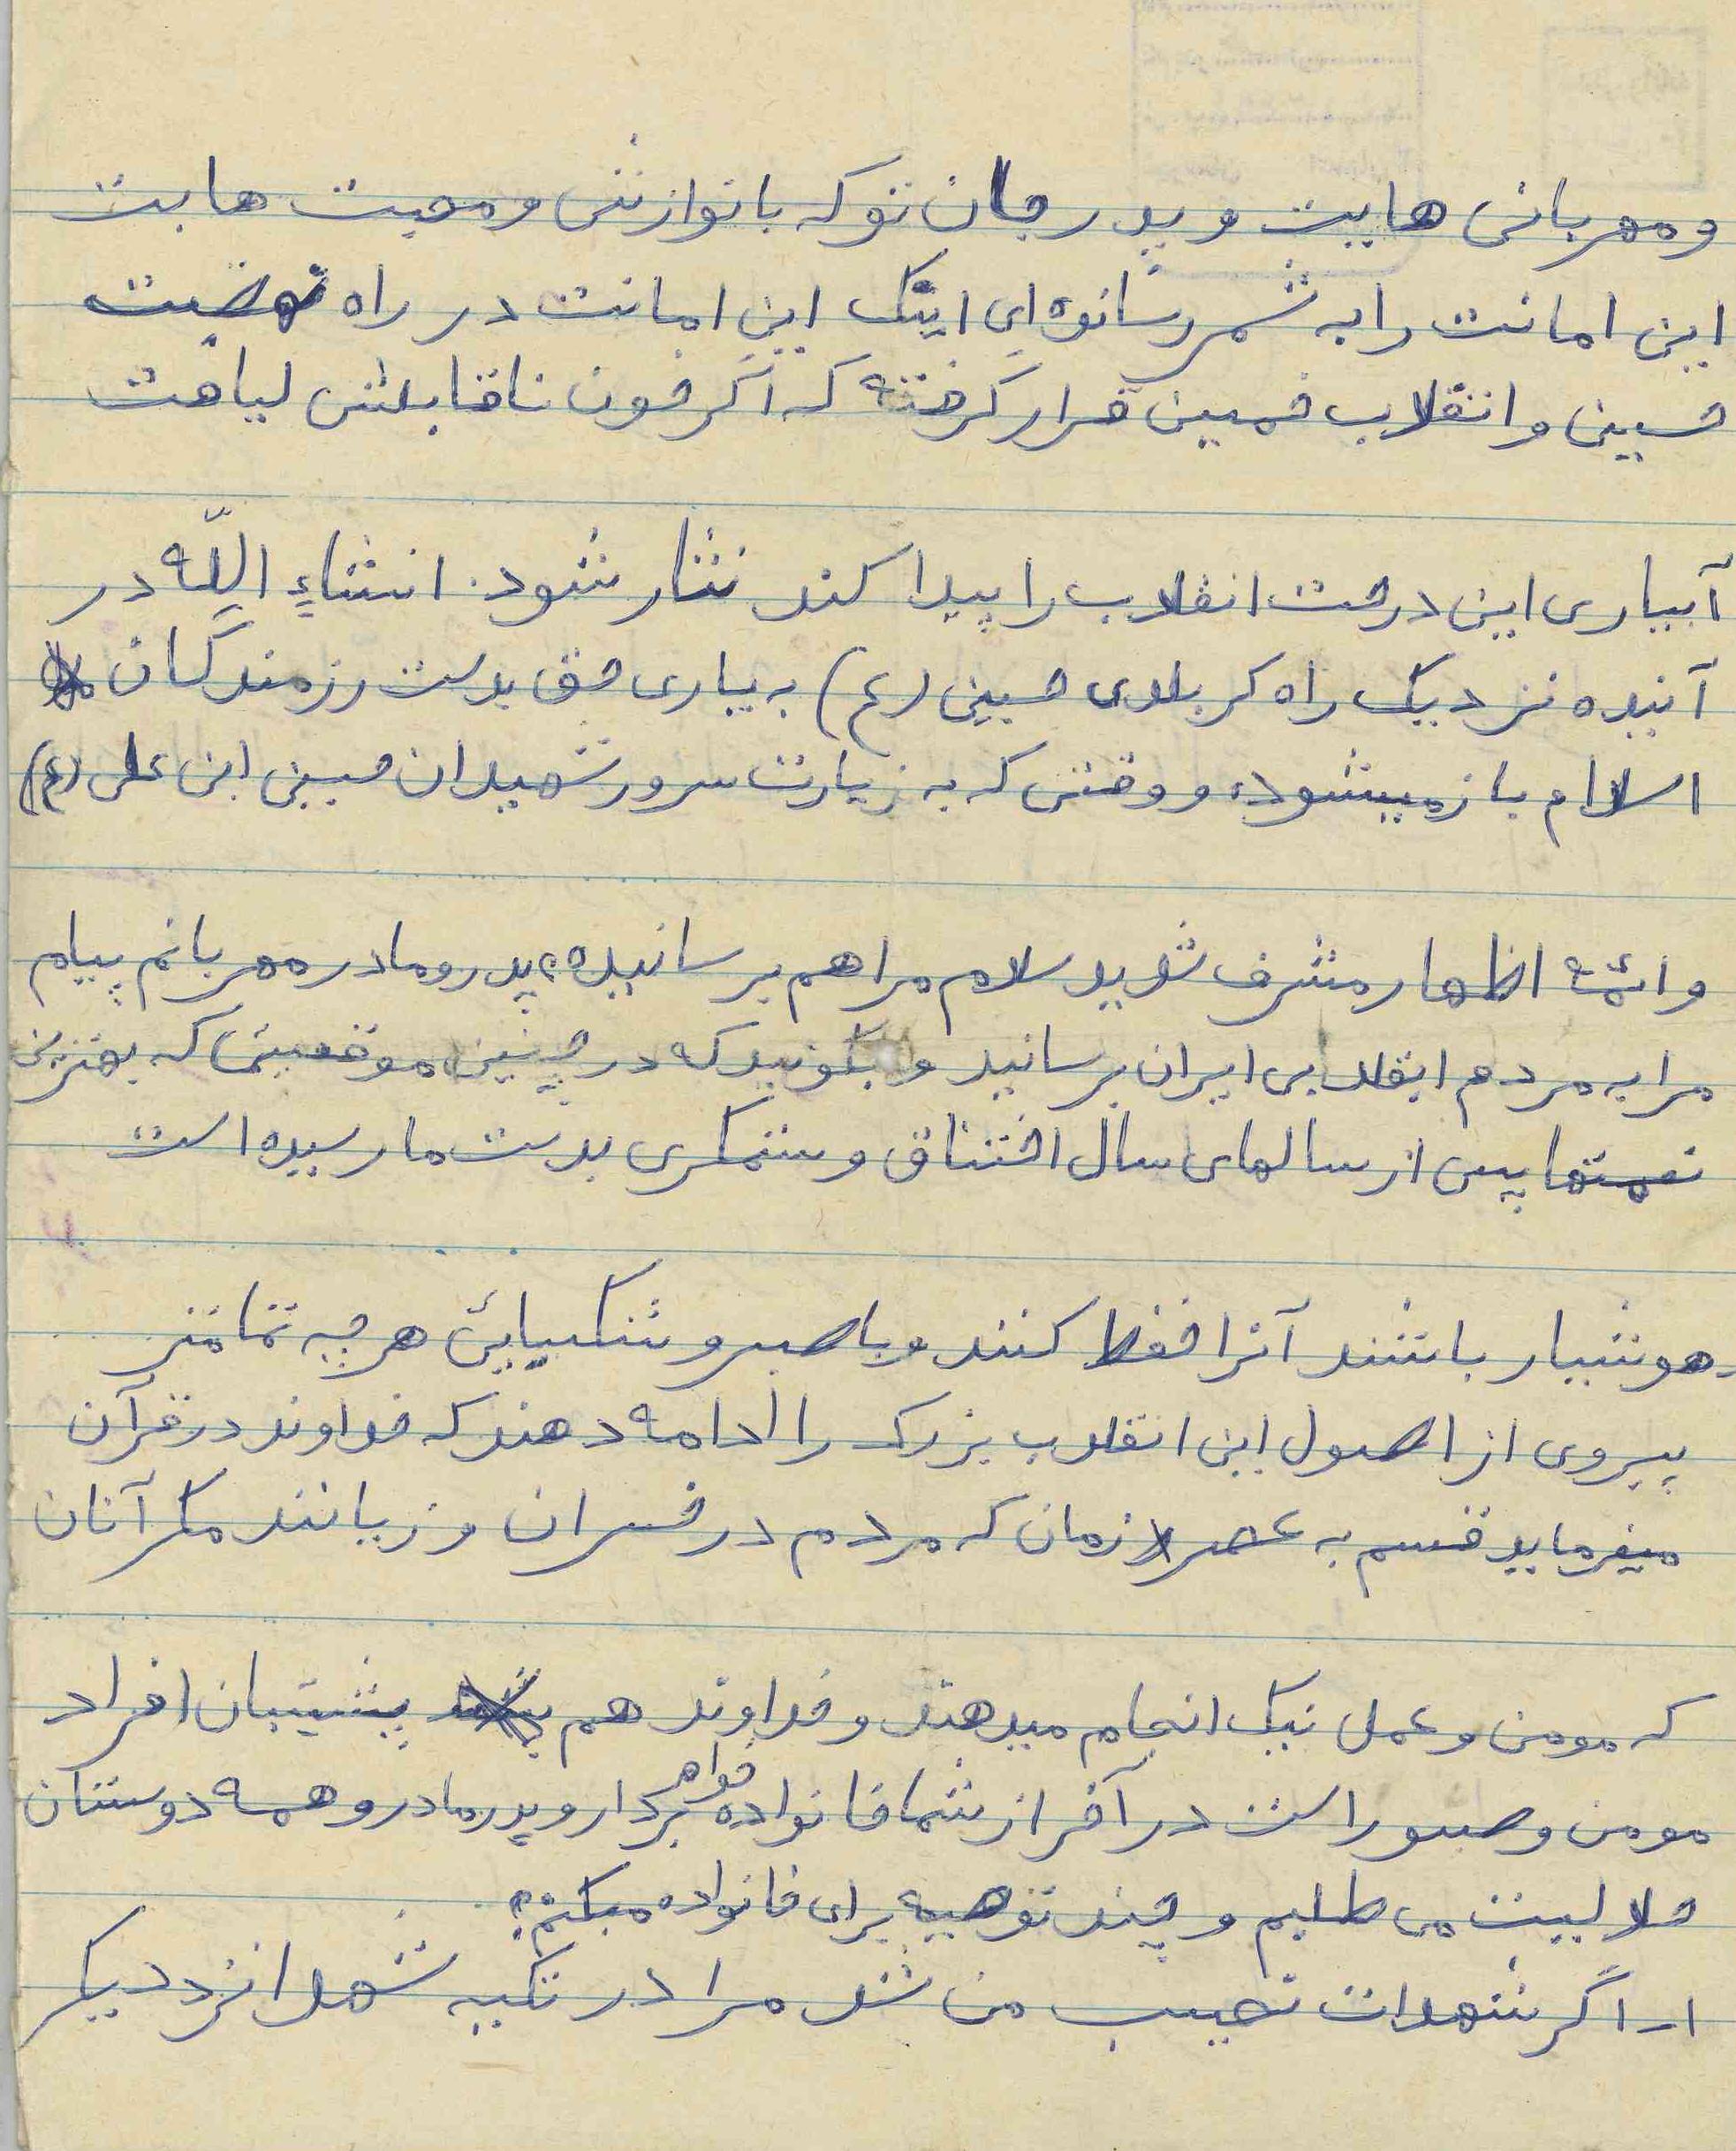 و مهربانی هایت و پدر جان تو که با نوازش و محبت هایت
این امانت را به ثمر رسانده ای اینک این امانت در راه نهضت
حسین و انقلاب خمین قرار گرفته که اگر خون ناقابلش لیاقت
آبیاری این درخت انقلاب را پیدا کند نثار شود. انشاء اللّه در
آینده نزدیک راه کربلای حسین (ع) به یاری حق بدست رزمندگان
اسلام باز میشود، و وقتی که به زیارت سرور شهیدان حسین ابن علی (ع)
و ائمه اطهار مشرف شدید سلام مرا هم برسانیده، پدر و مادر مهربانم پیام
مرا به مردم انقلابی ایران برسانید و بگوئید که در چنین موقعیتی که بهترین
نعمتها پس از سالهای سال اختناق و ستمگری بدست ما رسیده است
هوشیار باشند آنرا حفظ کنند و با صبر و شکیبایی هر چه تمامتر
پیروی از اصول این انقلاب بزرگ را ادامه دهند که خداوند در قرآن
میفرماید قسم به عصر زمان که مردم در خسران و زیانند مگر آنان
که مومن و عمل نیک انجام میدهند و خداوند هم پشتیبان افراد
مومن و صبور است در آخر از شما خانواده خواهر بردار و پدر مادر و همه دوستان
حلالیت می طلبم و چند توصیه برای خانواده میکنم؟
۱ـ اگر شهدات نصیب من شد مرا در تکیه شهدا نزد دیگر